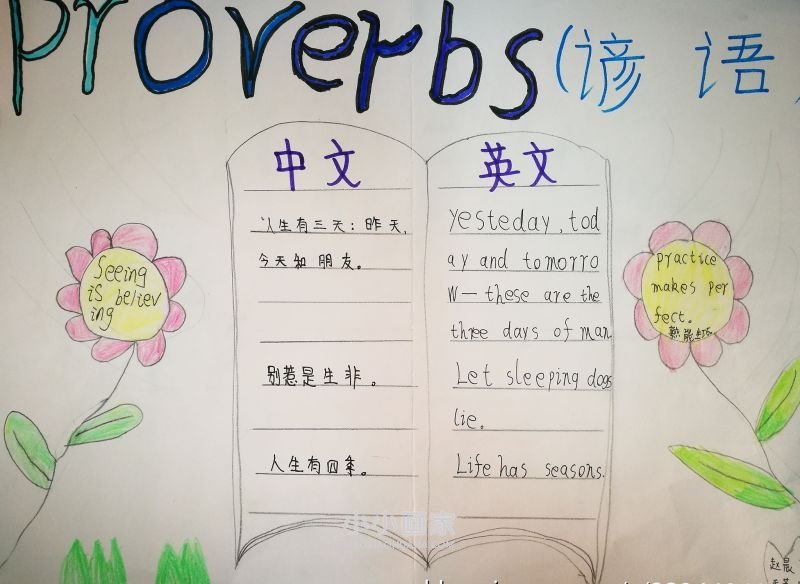 Proverbs(谚语)
中文
人生有三天：昨天,
今天和朋友。
别惹是生非。
人生有四季。
英文
yesteday, tod
ay and tomorro
w— these are the
three days of man
Let sleeping dogs
lie.
Life has seasons.
Seeing
is believ
ing
practice
makes per
fect.
小小画家
赵晨